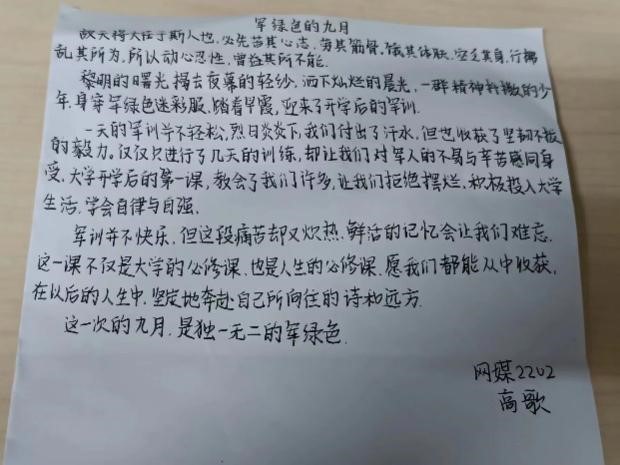 军绿色的九月
故天将大任于斯人也,必先苦其心志,劳其筋骨,饿其体肤,空乏其身,行拂
乱其所为,所以动心忍性,曾益其所不能.
黎明的曙光揭去夜幕的轻纱,洒下灿烂的晨光,一群精神抖擞的少
年,身穿军绿色迷彩服,踏着早霞,迎来了开学后的军训.
一天的军训并不轻松,烈日炎炎下,我们付出了汗水,但也收获了坚韧不拔
的毅力.仅仅只进行了几天的训练,却让我们对军人的不易与辛苦感同身
受.大学开学后的第一课,教会了我们许多,让我们拒绝摆烂,积极投入大学
生活,学会自律与自强.
军训并不快乐,但这段痛苦却又炽热、鲜活的记忆会让我们难忘.
这一课不仅是大学的必修课,也是人生的必修课.愿我们都能从中收获,
在以后的人生中,坚定地奔赴自己所向往的诗和远方.
这一次的九月,是独一无二的军绿色.
网媒2202
高歌